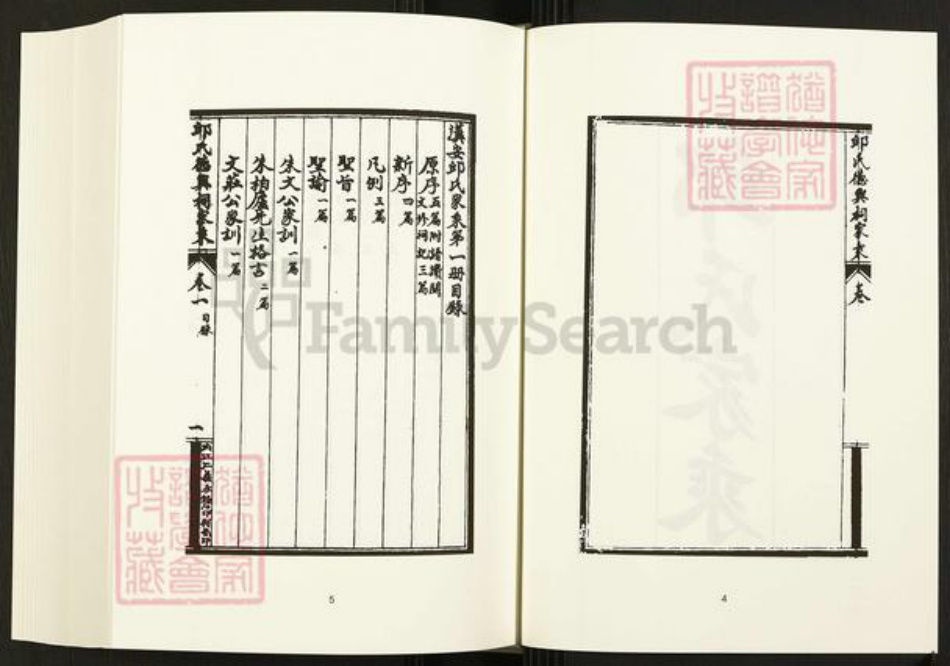 邱氏德興祠家乘
卷
4
漢安邱氏家乘第一册目錄
原序五篇附譜讚關
文修祠記三篇
新序四篇
凡例三篇
聖旨一篇
聖諭一篇
朱文公家訓一篇
朱柏廬先生格言二篇
文莊公家訓一篇
邱氏德興祠家乘
卷一目錄
一
5
FamilySearch
譜學會
收藏
譜學會
收藏